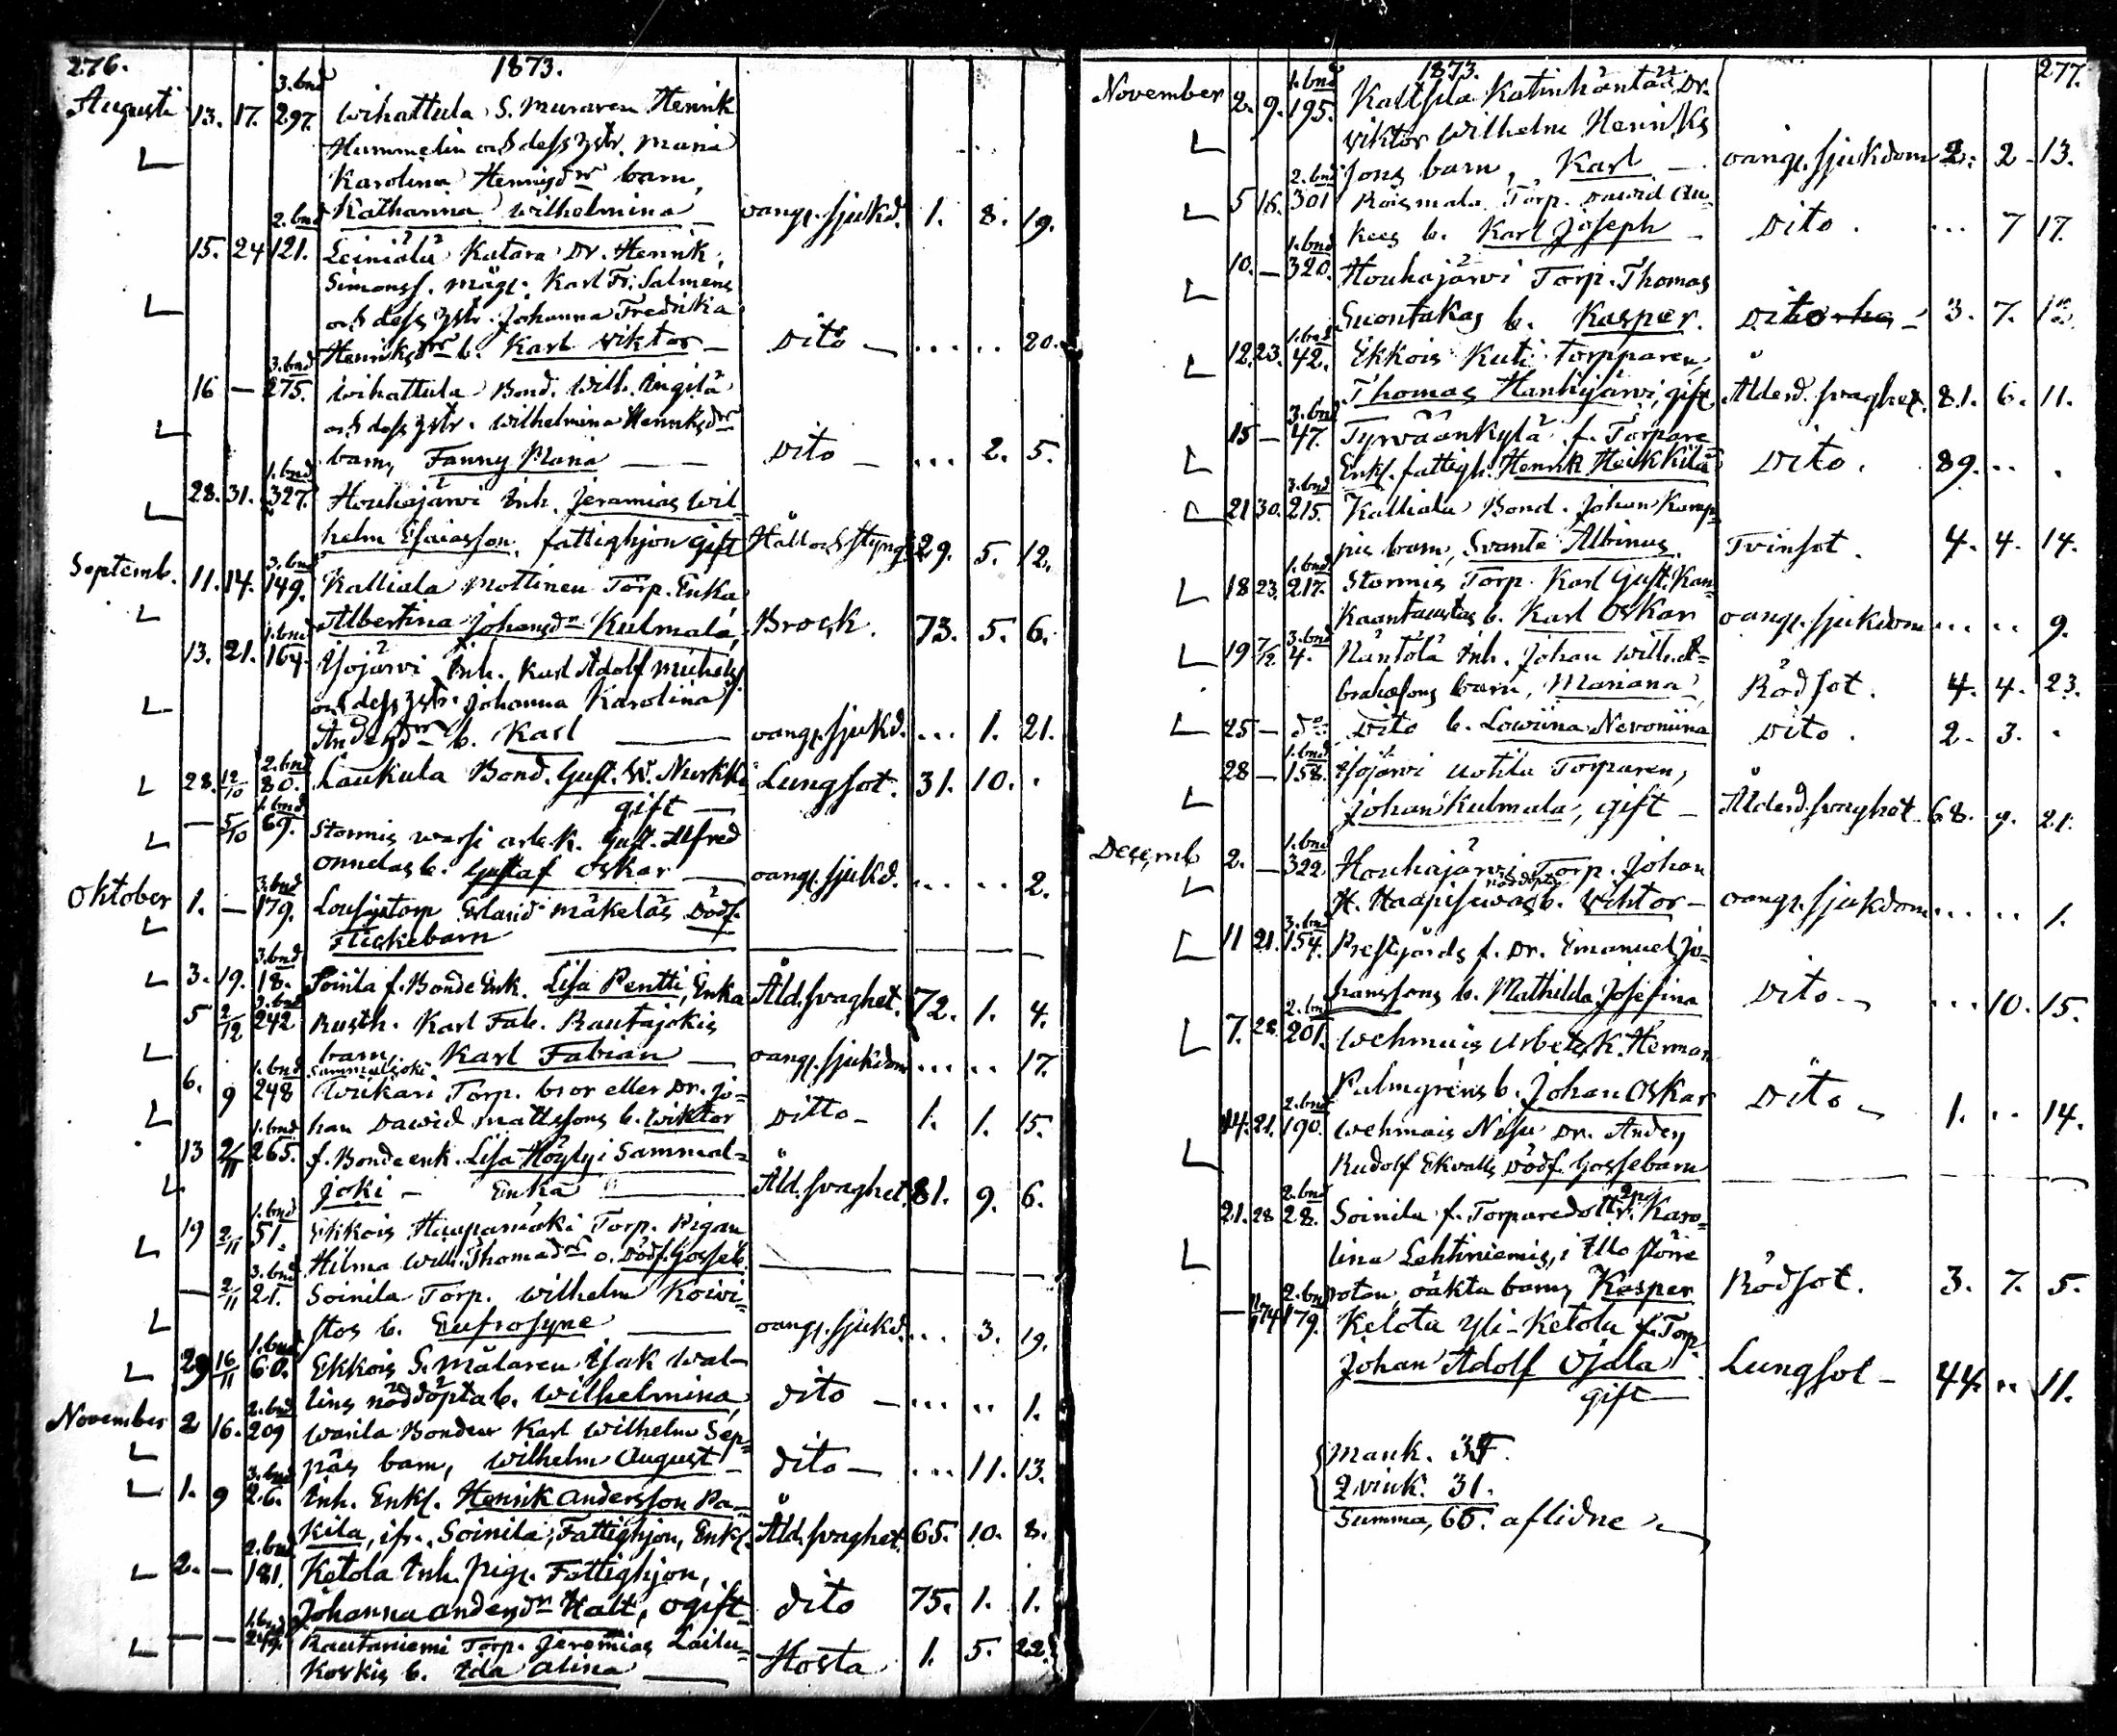 276.
1873.
3. bnd
Augusti 13. 17. 297. Wihattula S. Muraren Henrik
Hummelin och dess hstr. Maria
Karolina Henrigdr barn,
Katharina Wilhelmina — oang. sjukd. 1. 8. 19.
2. bnd
15. 24 121. Leiniälä Katara Dr. Henrik
Simonss. måg. Karl Fr. Salmens
och dess hstr. Johanna Fredrika
Henriksdr b. Karl Viktor — Dito — ... .. 20.
3. bnd
16 — 275. Wihattula Bond. Wilh. Ängilä
och dess hstr. Wilhelmina Henriksdr
barn, Fanny Maria — — Dito — ... 2. 5.
1. bnd
28. 31. 327. Houhajärvi Inh. Jeramias Wil=
helm Esaiasson, fattighjon gift Håll och Styng 29. 5. 12.
3. bnd
Septemb. 11. 14. 149. Kalliala Mottinen Torp. Enka
Albertina Johansdr Kulmala, Brock. 73. 5. 6.
1. bnd
13. 21. 164. Illojärvi Inh. Karl Adolf Michels.
och dess hstr. Johanna Karolina
Andersdr b. Karl — oang. sjukd. ... 1. 21.
2. bnd
28. 12/10 80. Laukula Bond. Gust. W. Nurkki Lungsot. 31. 10. .
gift —
1. bnd
— 5/10 69. Stormis Warsi arb. k. Gust. Alfred
Onnelas b. Gustaf Oskar — oang. sjukd. ... .. 2.
3. bnd
Oktober 1. — 179. Lousjatorp Erland Mäkeläs Dödf.
Flickebarn — — — —
3. bnd
3. 19. 18. Soinila f. Bonde Enk. Lisa Pentti, Enka Åld. svaghet. 72. 1. 4.
3. bnd
5 2/12 242 Rusth. Karl Fab. Rautajokis
barn, Karl Fabian — oang. sjukdom ... .. 17.
1. bnd Sammaljoki
6. 9 248 Wiikari Torp. bror eller Dr. Jo=
han Dawid Mattssons b. Wiktor Ditto — 1. 1. 15.
1. bnd
13 2/11 265. f. Bonde enk. Lisa Höyly i Sammal=
joki — Enka — Åld. svaghet 81. 9. 6.
1. bnd
19 2/11 51. Ekkois Haapamäki Torp. Pigan
Hilma Wilh. Thomasdr o. Dödf. Gosseb. — — —
3. bnd
— 2/11 21. Soinila Torp. Wilhelm Koivi=
stos b. Eufrosyne — oang. sjukd. ... 3. 19.
1. bnd
29 16/11 60. Ekkois S. Målaren Isak Wal=
lins nöddöpta b. Wilhelmina, dito — ... .. 1.
2. bnd
November 2 16. 209 Warila Bonden Karl Wilhelm Sep=
päs barn, Wilhelm August — dito — ... 11. 13.
3. bnd
1. 9 26. Inh. Enkl. Henrik Andersson Pa=
kila, ifr. Soinila, Fattighjon, Enkl. Åld. svaghet. 65. 10. 8.
2. bnd
2. — 181. Ketola Inh. Pig. Fattighjon,
Johanna Andersdr Hatt, ogift dito 75. 1. 1.
1. bnd
— — 249. Rautaniemi Torp. Jeremias Lailu=
koskis b. Ida Alina — Hosta 1. 5. 22.
1873.
277.
1. bnd
November 2. 9. 195. Kaltsila Katinhäntää Dr.
Viktor Wilhelm Henriks
sons barn, Karl — oang. sjukdom 2. 2 13.
2. bnd
5 16. 301 Roismala Torp. Dawid Au=
kees b. Karl Joseph — Dito. ... 7 17.
1. bnd
10. — 320. Houhajärvi Torp. Thomas
Suontakas b. Kasper. Dito — 3. 7. 12.
1. bnd
12. 23. 42. Ekkois Kuti Torpparen
Thomas Hanhijärvi, gift Ålderd. svaghet. 81. 6. 11.
3. bnd
15 — 47. Tyrväänkylä f. Torpare
Enkl. fattigh. Henrik Heikkilä Dito. 89. .. .
3. bnd
21 30. 215. Kalliala Bond. Johan Kamp=
pis barn, Svante Albinus. Tvinsot. 4. 4. 14.
1. bnd
18 23. 217. Stormis Torp. Karl Gust. Kan=
kaantaustas b. Karl Oskar oang. sjukdom ... .. 9.
3. bnd
19 7/12 4. Näntölä Inh. Johan Wilh. A=
brahasons barn, Mariana, Rödsot. 4. 4. 23.
25 — do Dito b. Lowiina Neroniina Dito. 2. 3. .
1. bnd
28 — 158. Illojärvi Uotila Torparen,
Johan Kulmala, gift — Ålderd. svaghet 68. 9. 21.
1. bnd
Decemb 2. — 322. Houhajärvi Torp. Johan
H. Haapisuvas nöddöpta b. Viktor — oang. sjukdom ... .. 1.
3. bnd
11 21. 154. Prestgårds f. Dr. Emanuel Jo=
hanssons b. Mathilda Josefina Dito — ... 10. 15.
2. bnd
7. 28. 201. Wehmais Arbets K. Herman
Palmgréns b. Johan Oskar Dito — 1. .. 14.
2. bnd
14. 21. 190. Wehmais Nisu Dr. Anders
Rudolf Ekvalls Dödf. Gossebarn — — —
2. bnd
21. 28 28. Soinila f. Torparedottr. Karo=
lina Lehtiniemis, i Illo större
roten, oäkta barn, Kasper Rödsot. 3. 7. 5.
2. bnd
— 179. Ketola Yli-Ketola f. Torp.
Johan Adolf Ojala Lungsot — 44. .. 11.
gift —
Mank. 34.
Qvink. 31.
Summa, 65. aflidne